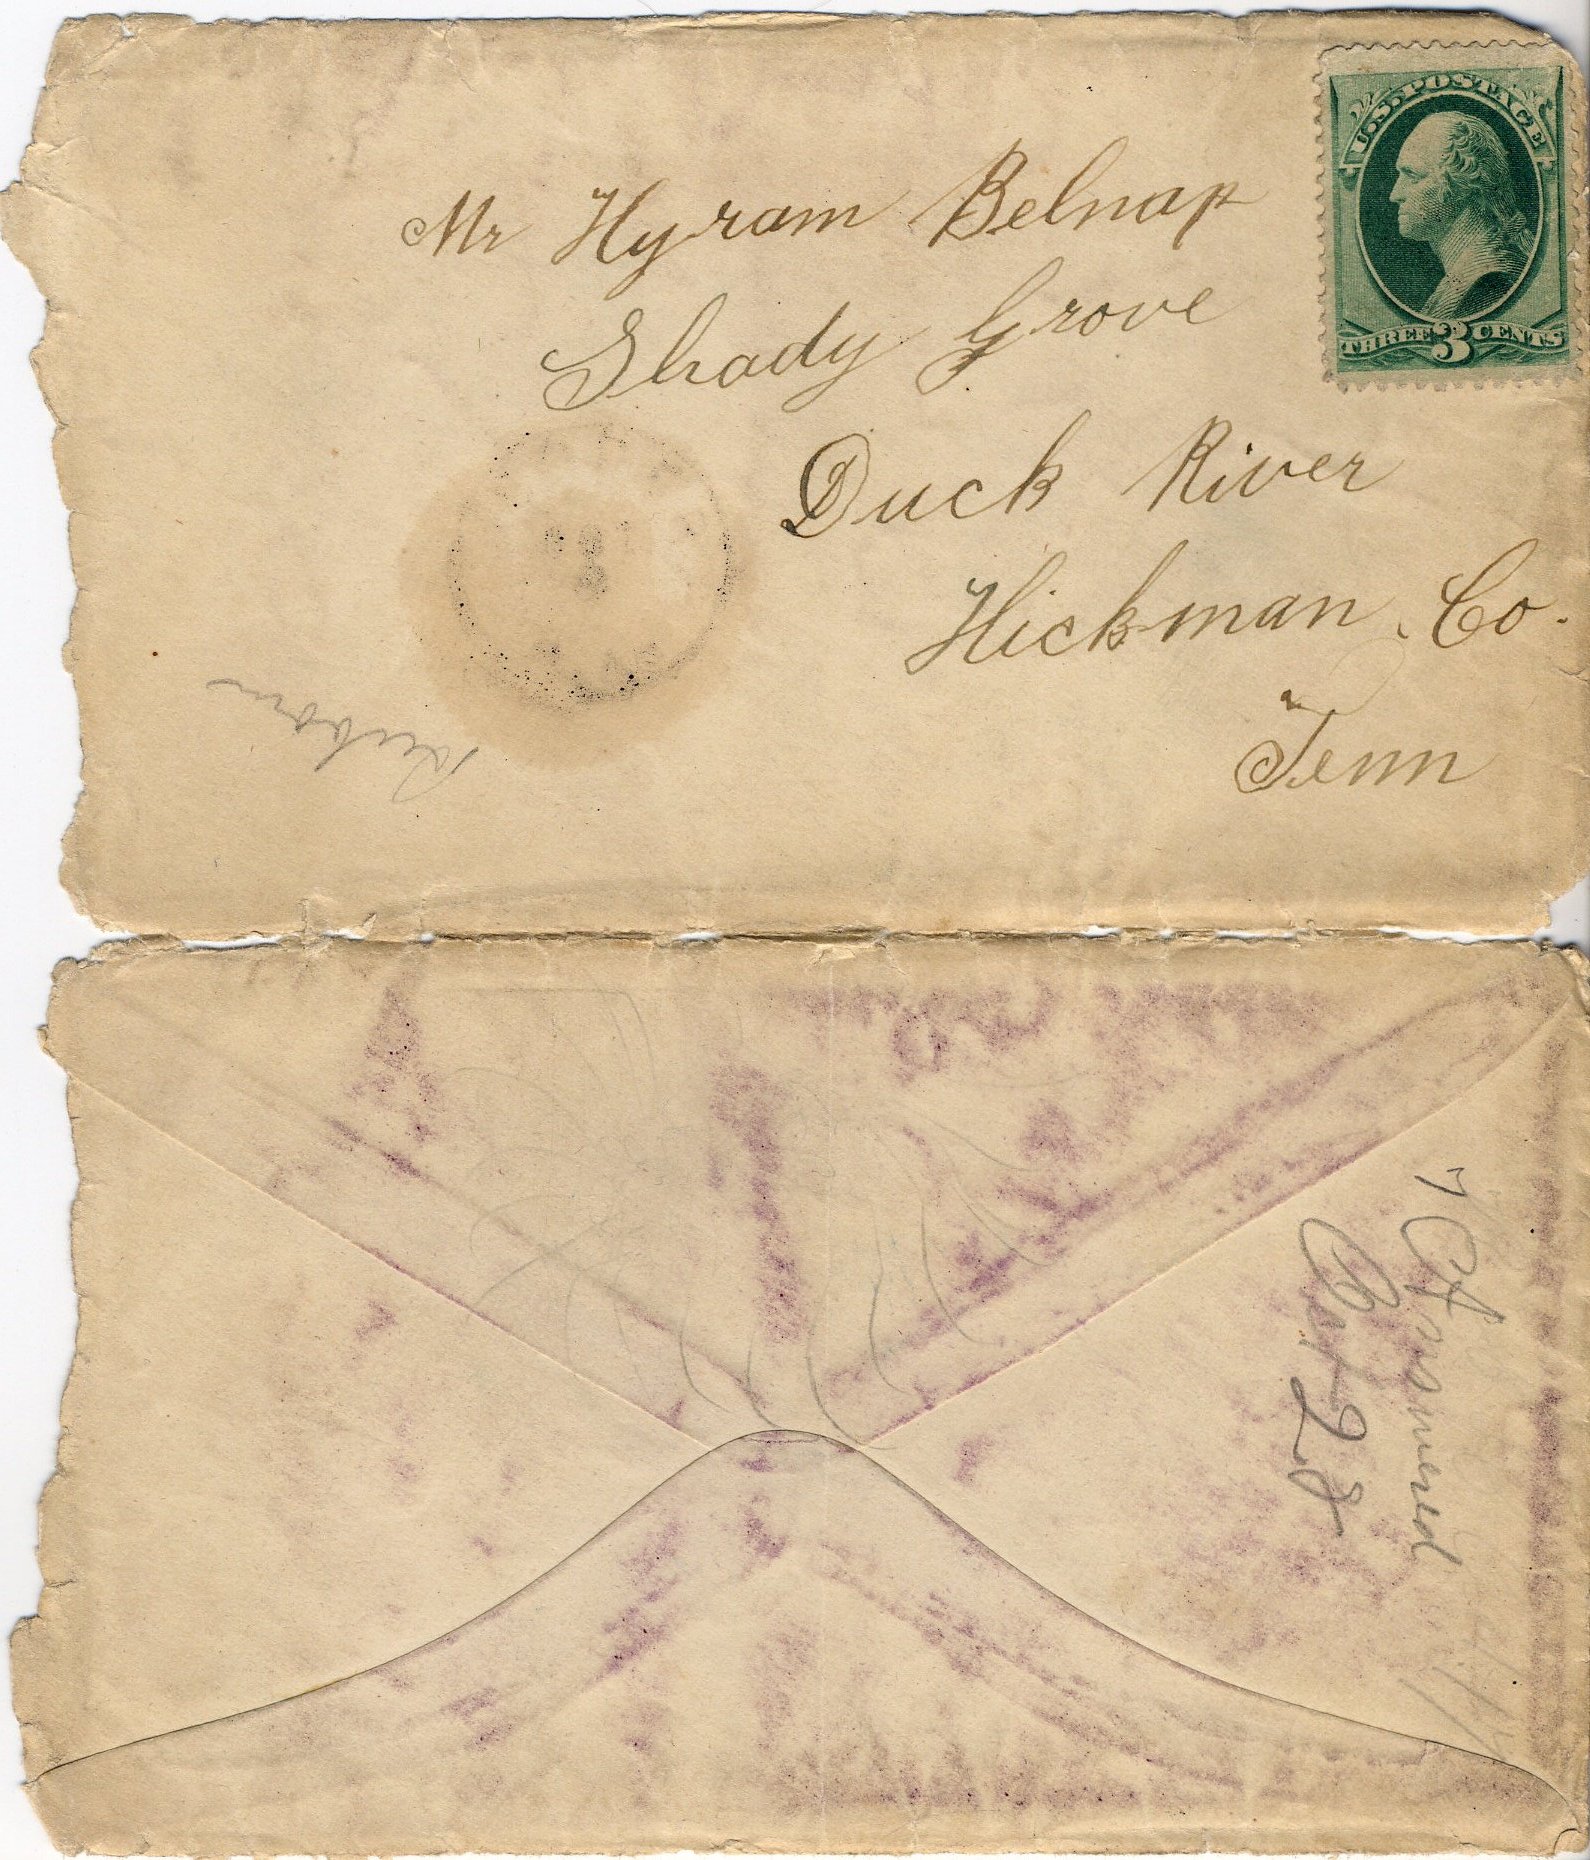 U.S. POSTAGE
THREE 3 CENTS
Mr Hyram Belnap
Shady Grove
Duck River
Hickman Co.
Tenn
Reubon
Answered
Oct 28